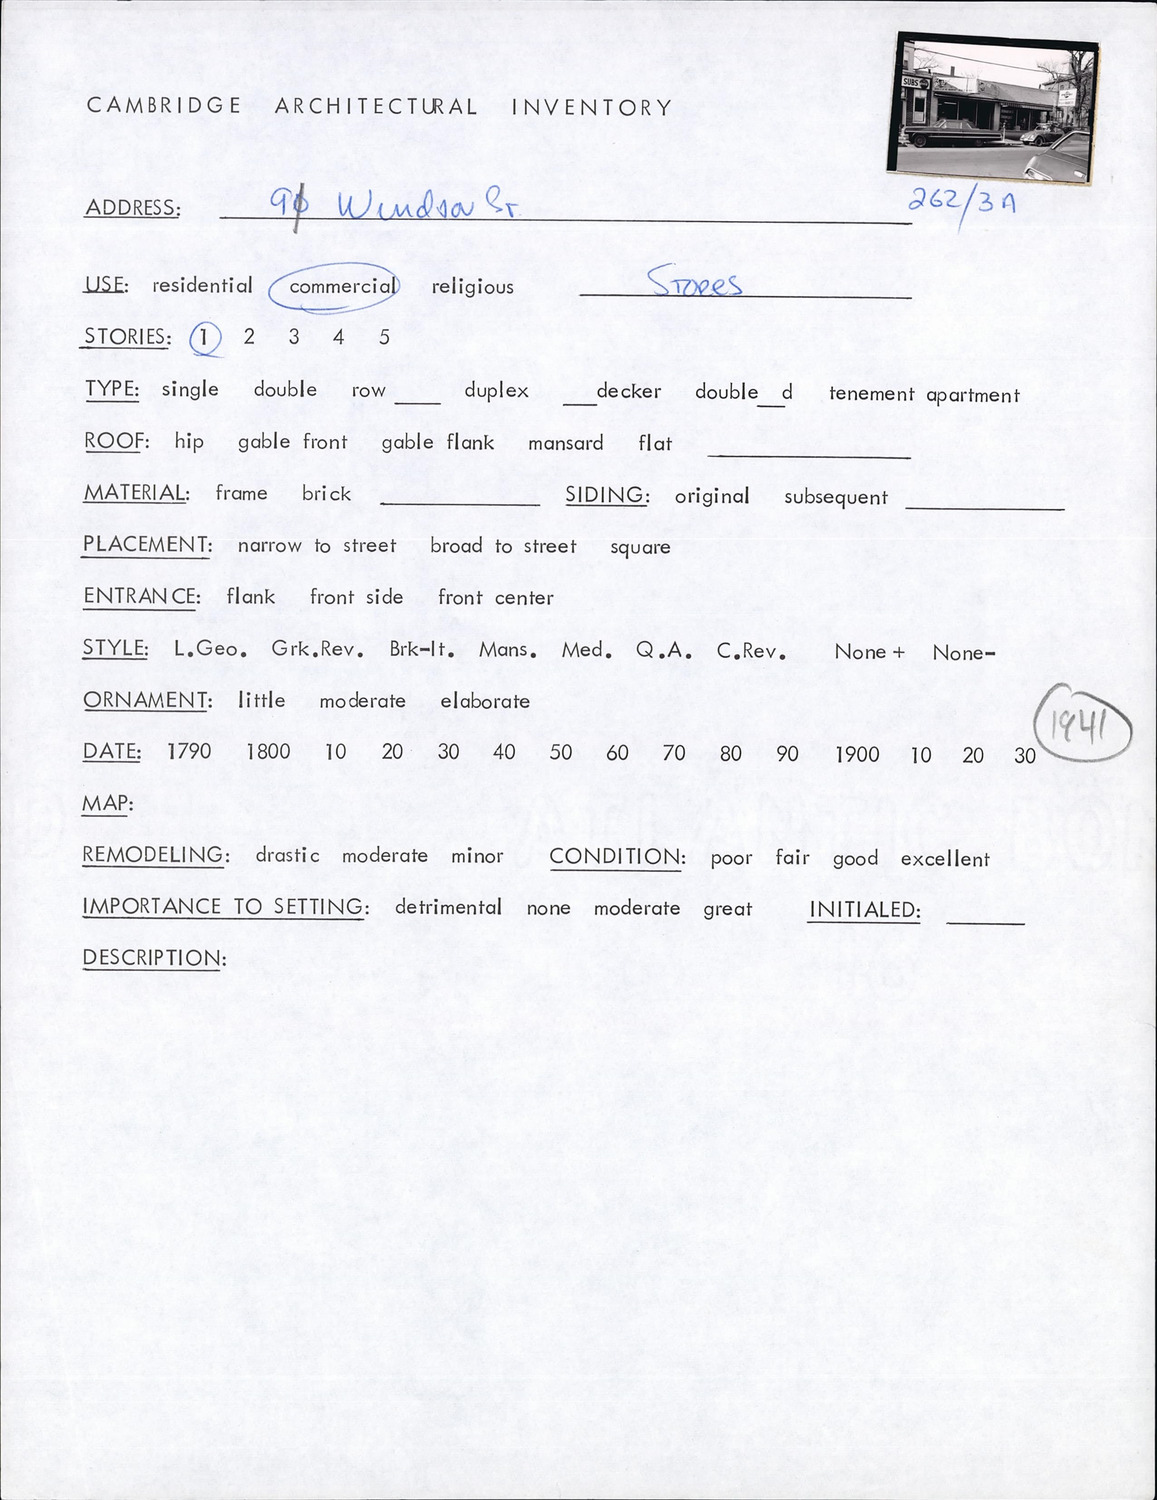 CAMBRIDGE ARCHITECTURAL INVENTORY
SUBS
ADDRESS: Windsor St. 262/3A
USE: residential commercial religious Stores
STORIES: 1 2 3 4 5
TYPE: single double row ____ duplex ___decker double__d tenement apartment
ROOF: hip gable front gable flank mansard flat
MATERIAL: frame brick ____ SIDING: original subsequent ____
PLACEMENT: narrow to street broad to street square
ENTRANCE: flank front side front center
STYLE: L.Geo. Grk.Rev. Brk-It. Mans. Med. Q.A. C.Rev. None+ None-
ORNAMENT: little moderate elaborate
1941
DATE: 1790 1800 10 20 30 40 50 60 70 80 90 1900 10 20 30
MAP:
REMODELING: drastic moderate minor CONDITION: poor fair good excellent
IMPORTANCE TO SETTING: detrimental none moderate great INITIALED: ____
DESCRIPTION: